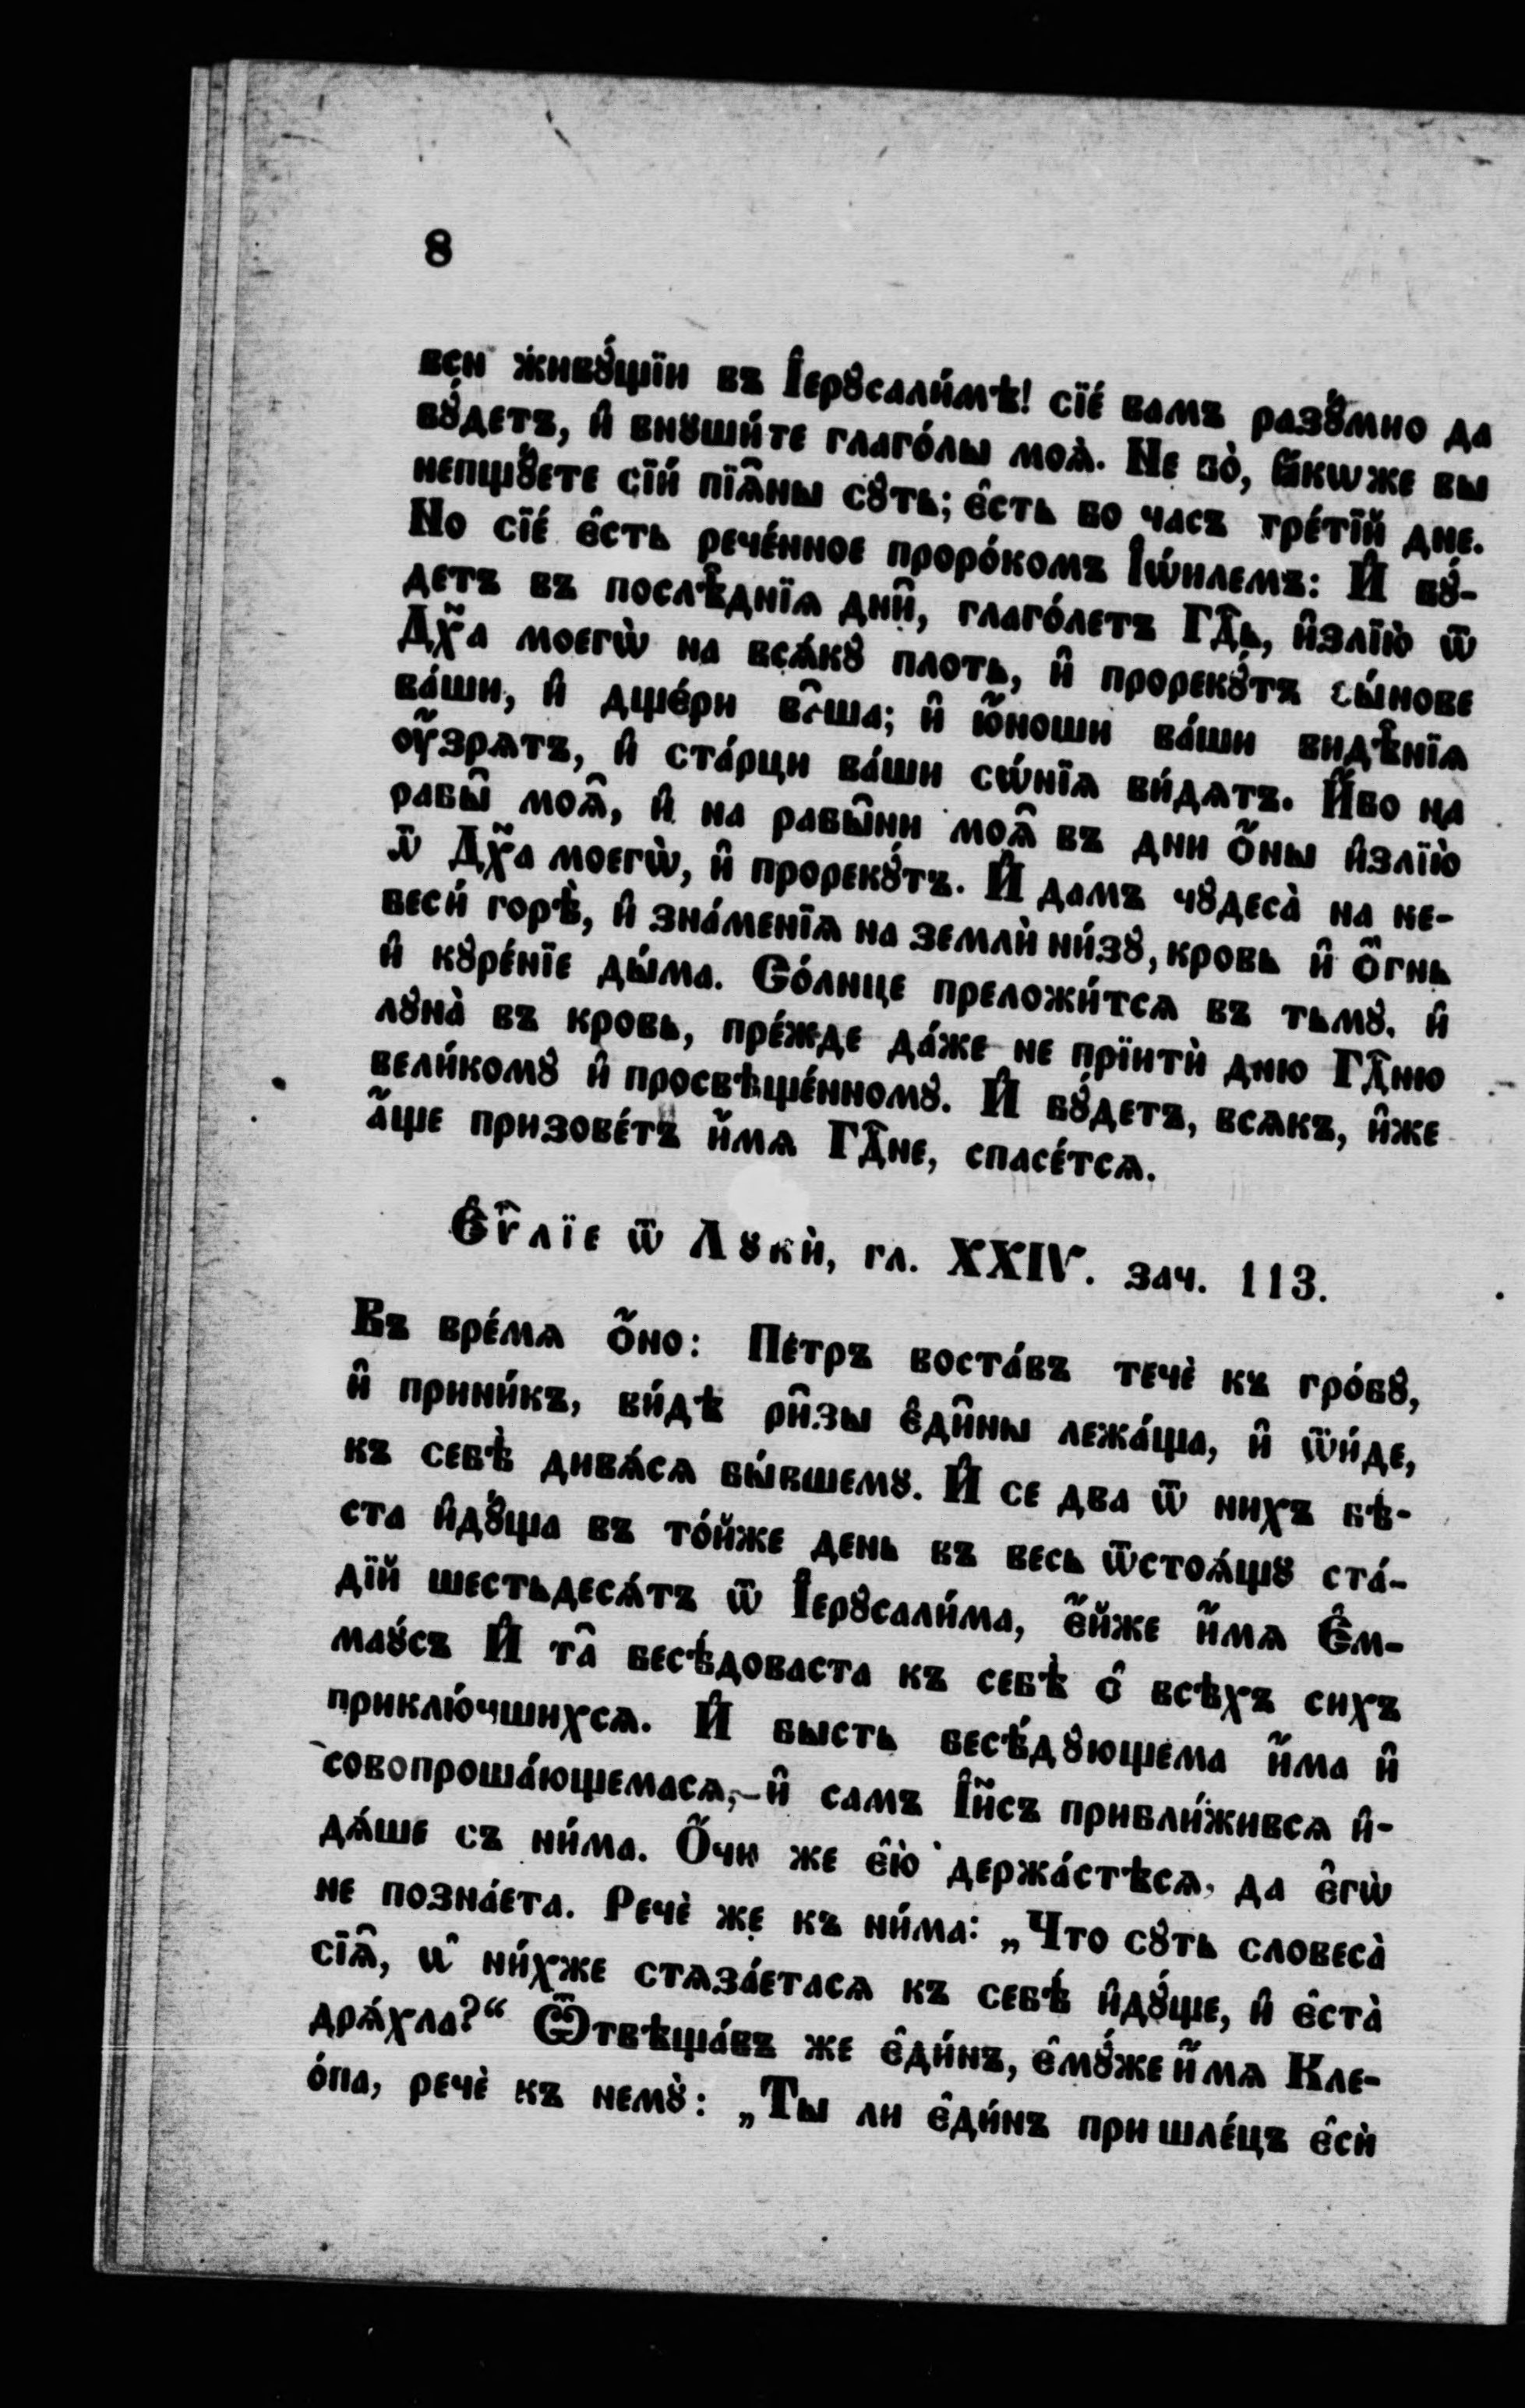 8
вси живꙋ́щїи въ І҆ерꙋсали́мѣ! сїѐ вамъ разꙋ́мно да
бꙋ́детъ, и҆ внꙋши́те глаго́лы моѧ̀. Не бо̀, ꙗ҆́кѡже вы
непщꙋ́ете сїи́ пїѧ̑ны сꙋть; є҆́сть бо часъ тре́тїй дне.
Но сїе́ є҆́сть рече́нное проро́комъ І҆ѡ́илемъ: И҆ бꙋ́-
детъ въ послѣ̑днїѧ дни̑, глаго́летъ Гд҇ь, и҆злїю̀ ѿ
Дх҃а моегѡ̀ на всѧ́кꙋ плоть, и҆ прорекꙋ́тъ сы́нове
ва́ши, и҆ дще́ри ва̑ша; и҆ ю҆́ноши ва́ши видѣ̑нїѧ
ᲂу҆́зрѧтъ, и҆ ста́рци ва́ши сѡ́нїѧ ви́дѧтъ. И҆́бо на
рабы̑ моѧ̑, и҆ на рабы̑ни моѧ̑ въ дни ѻ҆́ны и҆злїю̀
ѿ Дх҃а моегѡ̀, и҆ прорекꙋ́тъ. И҆ дамъ чꙋдеса̀ на не-
беси́ горѣ̀, и҆ зна́менїѧ на землѝ ни́зꙋ, кровь и҆ ѻ҆́гнь
и҆ кꙋре́нїе ды́ма. Со́лнце преложи́тсѧ въ тьмꙋ, и҆
лꙋна̀ въ кровь, пре́жде да́же не прїитѝ дню Гд҇ню
вели́комꙋ и҆ просвѣще́нномꙋ. И҆ бꙋ́детъ, всѧкъ, и҆же
а҆́ще призове́тъ и҆́мѧ Гд҇не, спасе́тсѧ.
Є҆ѵ҃лїе ѿ Лꙋкѝ, гл. XXIV. зач. 113.
Въ вре́мѧ ѻ҆́но: Пе́тръ воста́въ течѐ къ гро́бꙋ,
и҆ прини́къ, ви́дѣ ри̑зы є҆ди̑ны лежа́ща, и҆ ѿи́де,
къ себѣ̀ дивѧ́сѧ бы́вшемꙋ. И҆ се два ѿ нихъ бѣ-
ста и҆дꙋ́ща въ то́йже день къ весь ѿстоѧ́щꙋ ста́-
дїй шестьдесѧ́тъ ѿ І҆ерꙋсали́ма, є҆́йже и҆́мѧ Є҆м-
маꙋ́съ И҆ та̑ бесѣ́доваста къ себѣ̀ ѻ҆ всѣхъ сихъ
приклю́чшихсѧ. И҆ бысть бесѣ́дꙋющема и҆́ма и҆
совопроша́ющемасѧ,—и҆ самъ І҆и҃съ прибли́живсѧ и҆-
дѧ́ше съ ни́ма. Ѻ҆́чи же є҆ю̀ держа́стѣсѧ, да є҆гѡ̀
не позна́ета. Речѐ же къ ни́ма: „Что сꙋть словеса̀
сїѧ̑, ѡ҆ ни́хже стѧза́етасѧ къ себѣ́ и҆дꙋ́ще, и҆ є҆ста̀
дрѧ́хла?“ Ѿтвѣща́въ же є҆ди́нъ, є҆мꙋ́же и҆́мѧ Кле-
ѻ́па, речѐ къ немꙋ̀: „Ты ли є҆ди́нъ пришле́цъ є҆сѝ